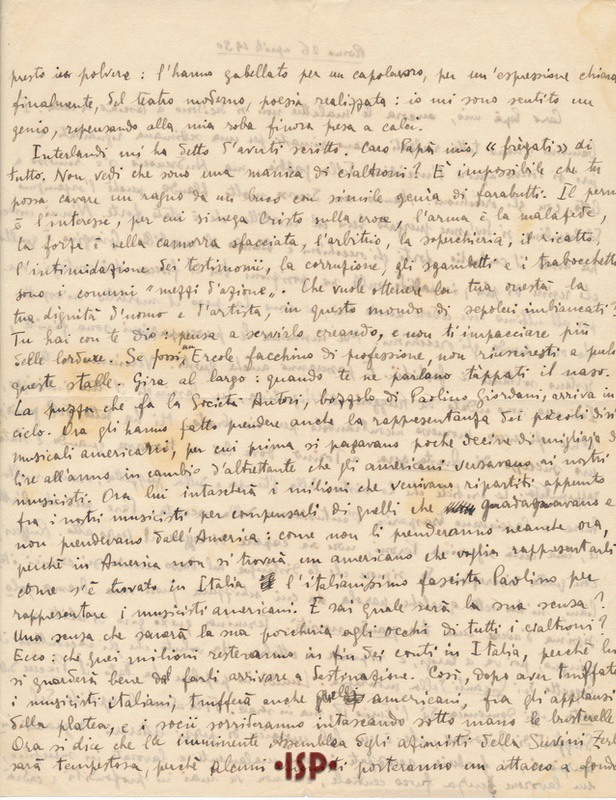 presto in polvere: l'hanno gabellato per un capolavoro, per un'espressione chiara
finalmente, del teatro moderno, poesia realizzata: io mi sono sentito un
genio, ripensando alla mia roba finora presa a calci.
Interlandi mi ha detto d'averti scritto. Caro Papà mio, «frègati» di
tutto. Non vedi che sono una manica di cialtroni? È impossibile che tu
possa cavare un ragno da un buco con simile genìa di farabutti. Il perno
è l'interesse, per cui si nega Cristo sulla croce, l'arma è la malafede,
la forza è nella camorra sfacciata, l'arbitrio, la soperchieria, il ricatto,
l'intimidazione dei testimonii, la corruzione, gli sgambetti e i trabocchetti
sono i comuni "mezzi d'azione". Che vuole ottenere la tua onestà la
tua dignità d'uomo e d'artista, in questo mondo di sepolcri imbiancati?
Tu hai con te Dio: pensa a servirlo creando, e non ti impacciare più
delle lordure. Se fossi un Ercole facchino di professione, non riusciresti a pulire
queste stalle. Gira al largo: quando te ne parlano tàppati il naso.
La puzza che fa la Società Autori, bozzolo di Paolino Giordani, arriva in
cielo. Ora gli hanno fatto prendere anche la rappresentanza dei piccoli diritti
musicali americani, per cui prima si pagavano poche decine di migliaja di
lire all'anno in cambio d'altrettante che gli americani versavano ai nostri
musicisti. Ora lui intascherà i milioni che venivano ripartiti appunto
fra i nostri musicisti per compensarli di quelli che guadagnavano e
non prendevano dall'America: come non li prenderanno neanche ora,
perché in America non si troverà un americano che voglia rappresentarli
come s'è trovato in Italia l'italianissimo fascista Paolino per
rappresentare i musicisti americani. E sai quale sarà la sua scusa?
Una scusa che sanerà la sua porcheria agli occhi di tutti i cialtroni?
Ecco: che quei milioni resteranno in fin dei conti in Italia, perché lui
si guarderà bene dal farli arrivare a destinazione. Così, dopo aver truffato
i musicisti italiani, trufferà anche quelli americani, fra gli applausi
della platea, e i socii sorrideranno intascando sotto mano le bustarelle.
Ora si dice che la imminente Assemblea degli azionisti della Suvini Zerb
sarà tempestosa, perché alcuni porteranno un attacco a fondo
•ISP•